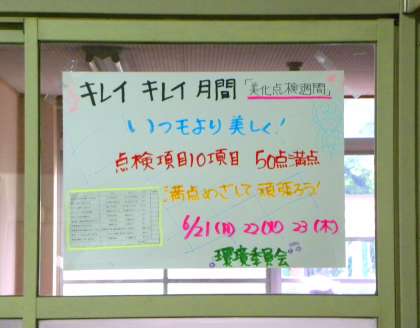 キレイ キレイ 月間 「美化点検週間」
いつもより 美しく!
点検項目10項目 50点満点
満点めざして 頑張ろう!
6/21(月) 22(火) 23(木)
環境委員会